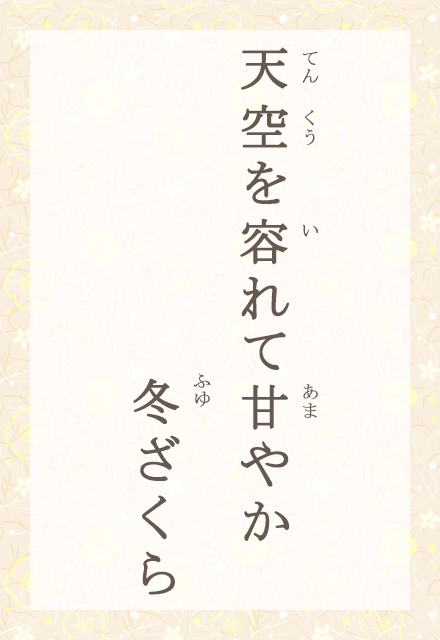 天空を容れて甘やか
てんくう い あま
冬ざくら
ふゆ